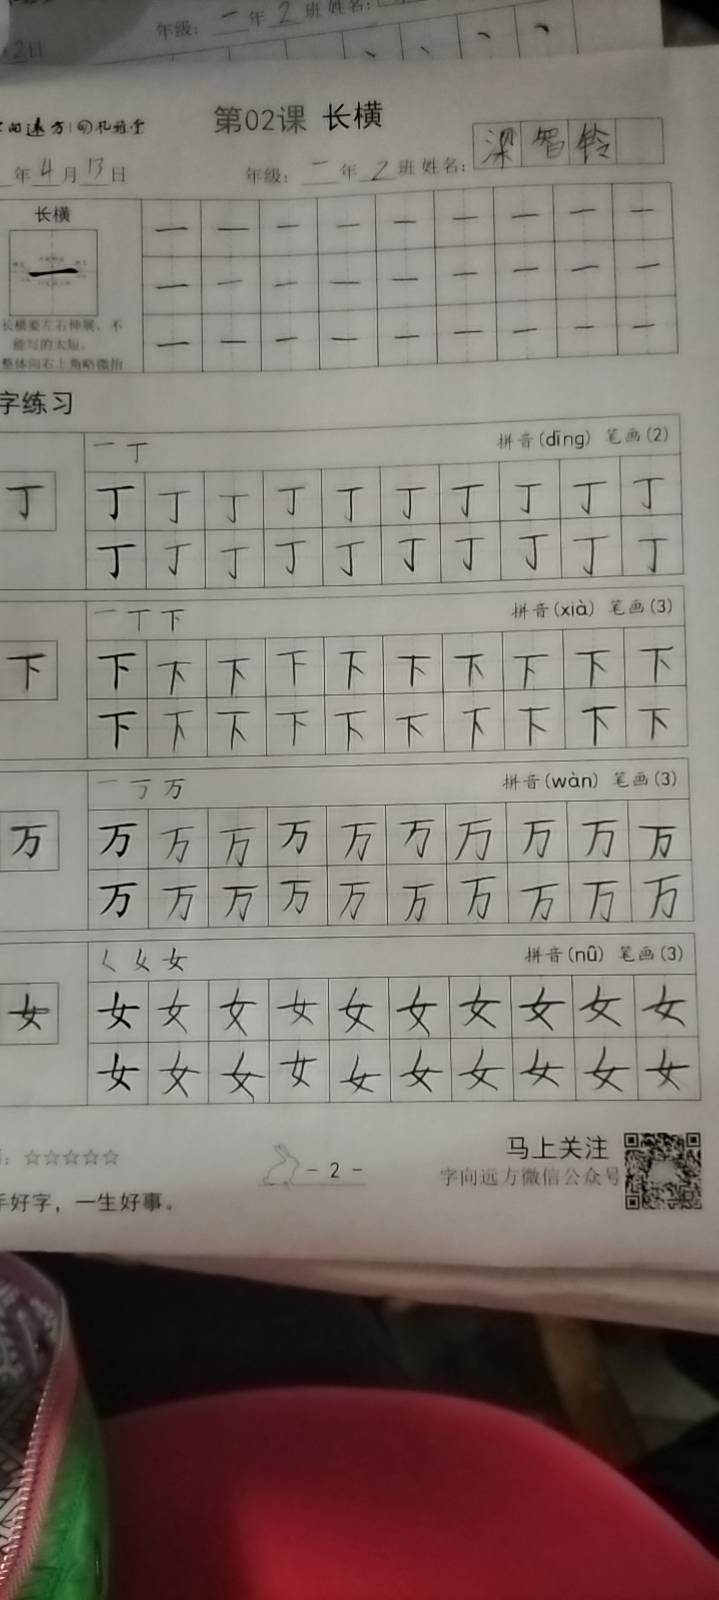 年级：一年2班 姓名：
2日
字向远方 孔雅堂
第02课 长横
年4月13日
年级：一年2班 姓名：梁智铃
长横
一 一 一 一 一 一 一 一 一
一 一 一 一 一 一 一 一 一 一
长横要左右伸展，不
能写的太短。
整体向右上角略微抬
一 一 一 一 一 一 一 一 一
字练习
一 丁
拼音(dīng) 笔画(2)
丁 丁 丁 丁 丁 丁 丁 丁 丁 丁 丁
丁 丁 丁 丁 丁 丁 丁 丁 丁 丁
一 丅 下
拼音(xià) 笔画(3)
下 下 下 下 下 下 下 下 下 下 下
下 下 下 下 下 下 下 下 下 下
一 丆 万
拼音(wàn) 笔画(3)
万 万 万 万 万 万 万 万 万 万 万
万 万 万 万 万 万 万 万 万 万
く 女 女
拼音(nǚ) 笔画(3)
女 女 女 女 女 女 女 女 女 女 女
女 女 女 女 女 女 女 女 女 女
：☆☆☆☆☆
- 2 -
马上关注
字向远方微信公众号
手好字，一生好事。